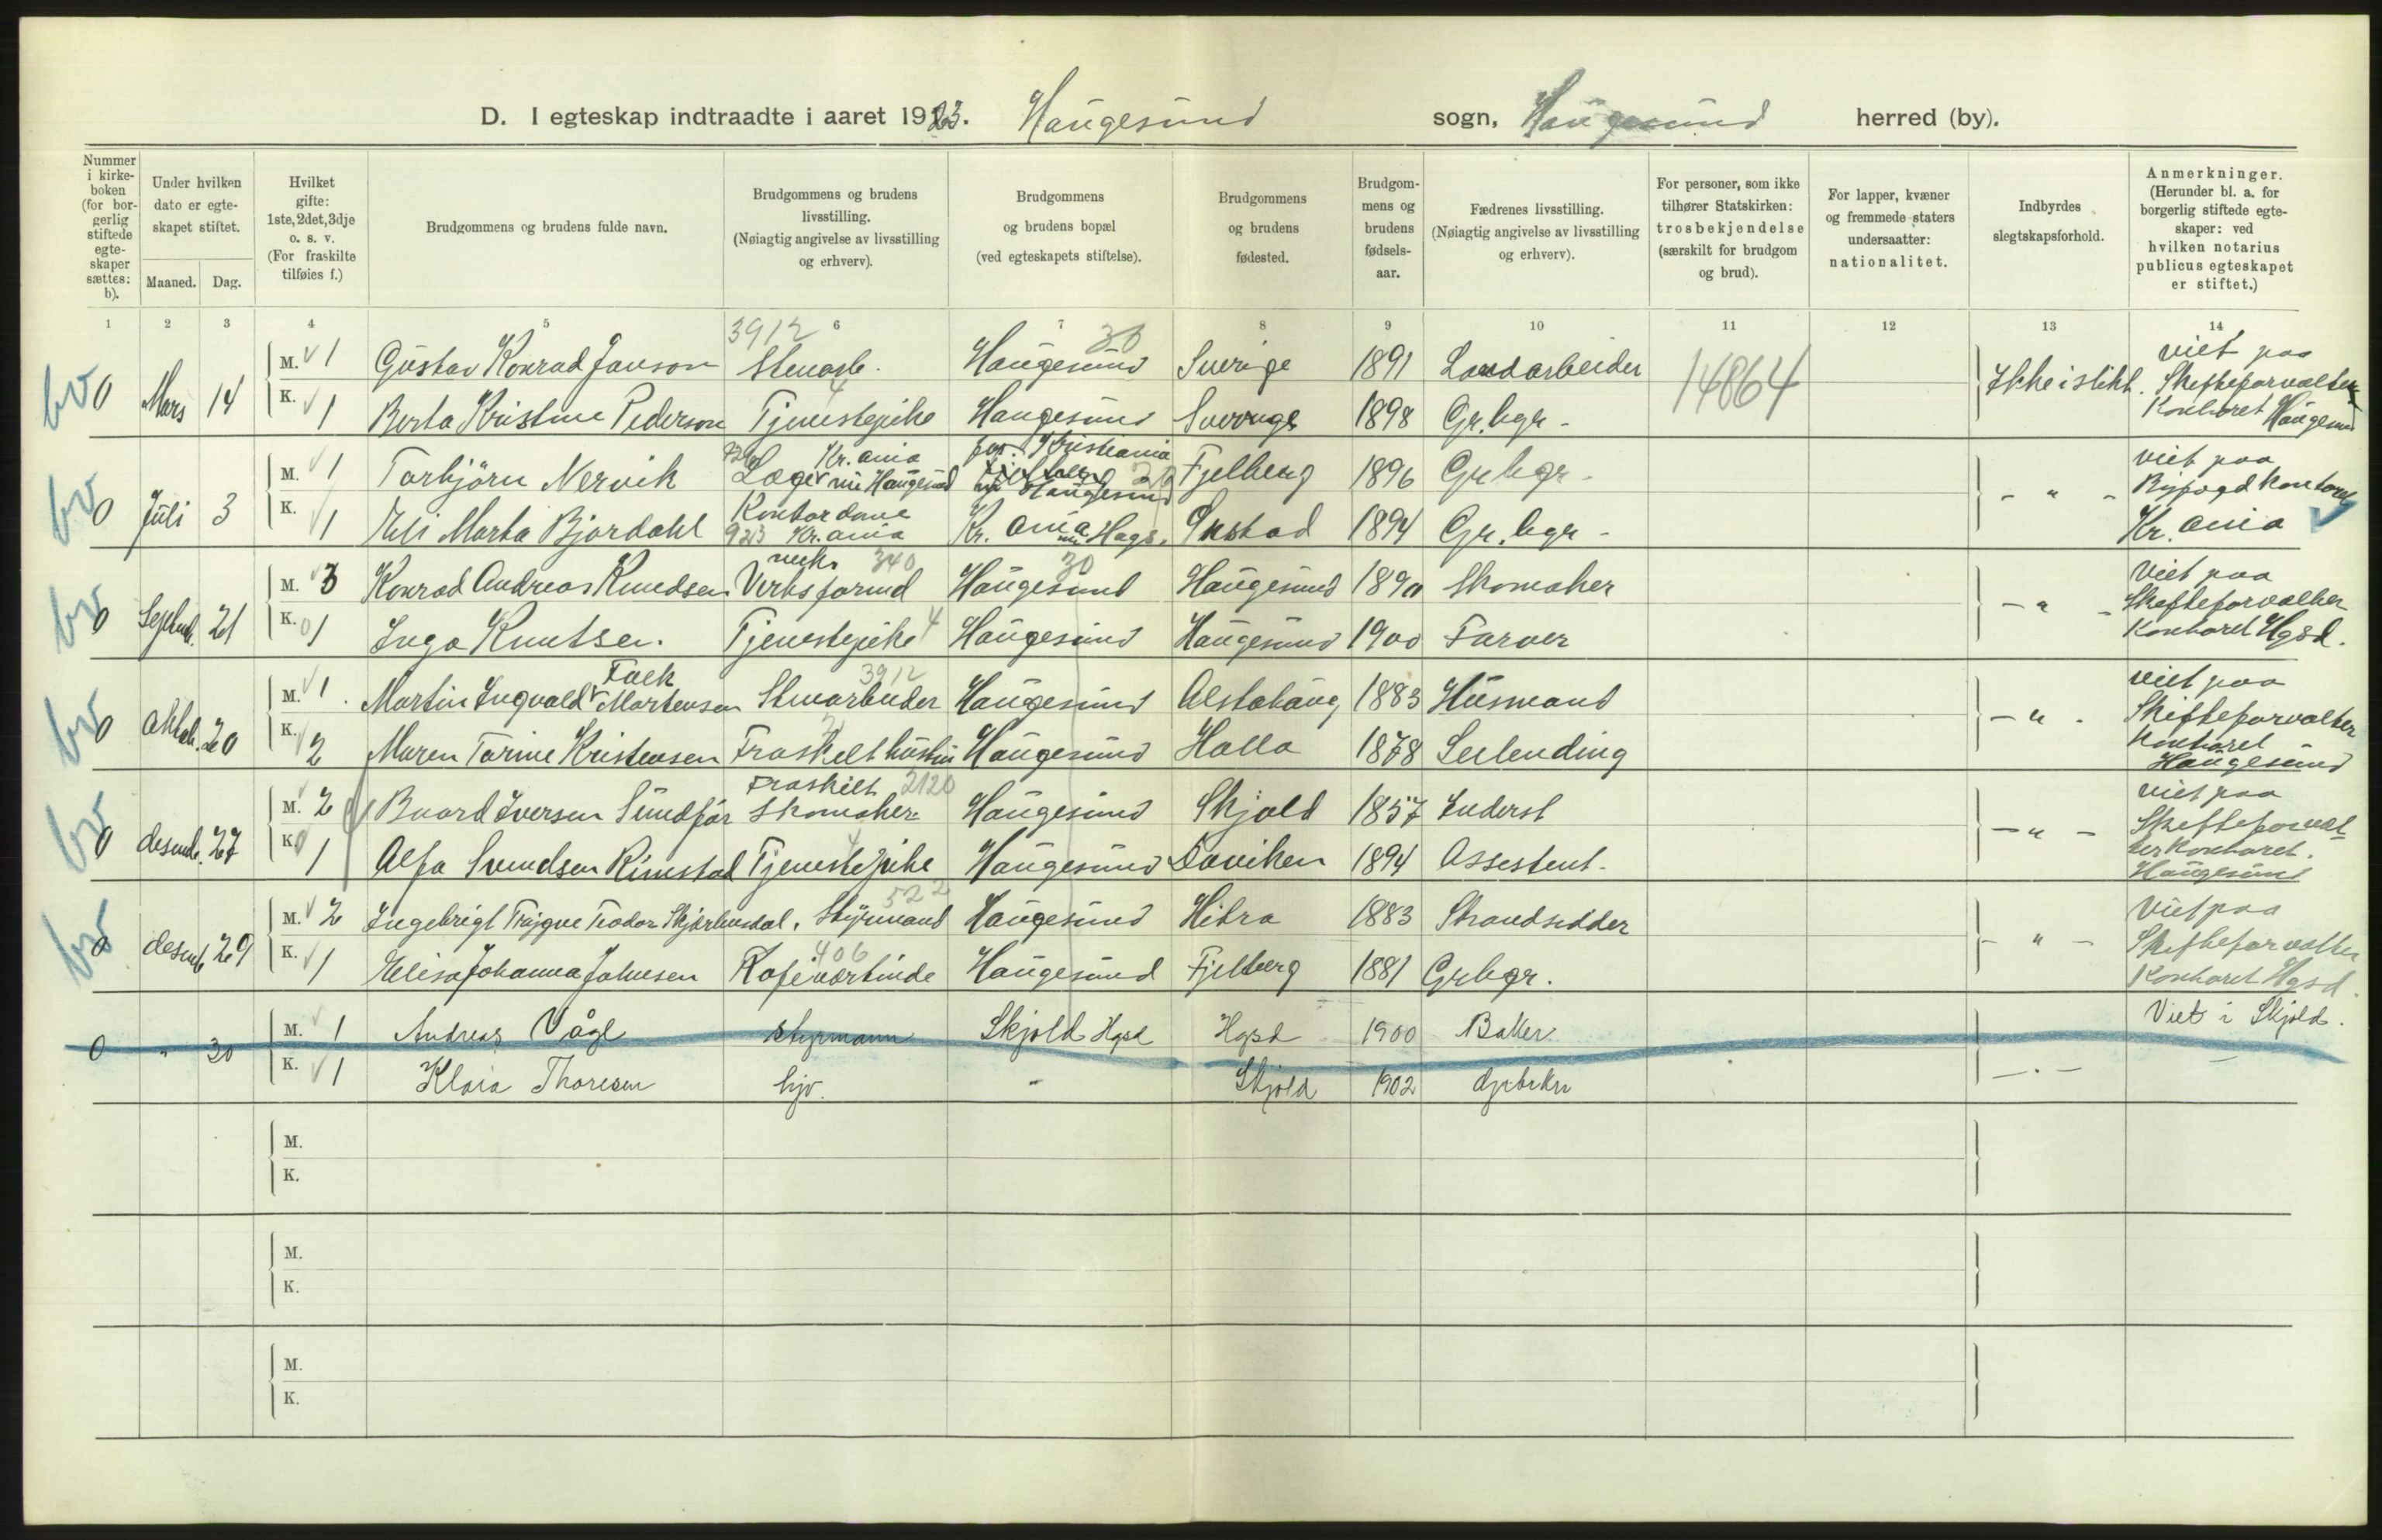 D. I egteskap indtraadte i aaret 1923. Haugesund sogn, Haugesund herred (by).
Nummer i kirkeboken (for borgerlig stiftede egteskaper sættes: b).
Under hvilken dato er egteskapet stiftet.
Maaned. Dag.
Hvilket gifte: 1ste, 2det, 3dje o. s. v. (For fraskilte tilføies f.)
Brudgommens og brudens fulde navn.
Brudgommens og brudens livsstilling. (Nøiagtig angivelse av livsstilling og erhverv).
Brudgommens og brudens bopæl (ved egteskapets stiftelse).
Brudgommens og brudens fødested.
Brudgommens og brudens fødselsaar.
Fædrenes livsstilling. (Nøiagtig angivelse av livsstilling og erhverv).
For personer, som ikke tilhører Statskirken: trosbekjendelse (særskilt for brudgom og brud).
For lapper, kvæner og fremmede staters undersaatter: nationalitet.
Indbyrdes slegtskapsforhold.
Anmerkninger. (Herunder bl. a. for borgerlig stiftede egteskaper: ved hvilken notarius publicus egteskapet er stiftet.)
1 2 3 4 5 6 7 8 9 10 11 12 13 14
3912 30
bv 0 Mars 14 M. 1 Gustav Konrad Janson Stenarb. Haugesund Sverige 1891 Landarbeider 14864 Ikke i slikt. viet paa Skifteforvalter Kontoret Haugesund
K. 1 Berta Kristine Pederson Tjenestepike 4 Haugesund Sverige 1898 Gr.bgr -
bv 0 Juli 3 M. 1 Torbjörn Nervik Læge Kr.ania nu Haugesund for. Kristiania nu Haugesund Fjelberg 1896 Gr bgr - - " - viet paa Byfogdkontoret Kr.ania
K. 1 Eli Marta Bjordahl Kontordame 923 Kr.ania Kr.ania nu Hags. 1894 Gr.bgr -
bv 0 Septemb. 21 M. 3 Konrad Andreas Knudsen mek. 340 Verksformd Haugesund 30 Haugesund 1890 Skomaker - " - Viet paa Skifteforvalter Kontoret Hgsd.
K. 0 1 Inga Knutsen. Tjenestepike 4 Haugesund Haugesund 1900 Farver
bv 0 Oktob. 20 M. 1 Martin Ingvald Falk Martensen 3912 Stenarbeider Haugesund Alstahaug 1883 Husmand - " - viet paa Skifteforvalter Kontoret Haugesund
K. 2 Maren Tarine Kristensen Fraskelt Haugesund Halla 1878 Leilending
bv 0 desemb. 27 M. 2 Baard Iversen Sundfør Fraskilt 2120 Skomaker Haugesund Skjold 1857 Inderst - " - viet paa Skifteforvalter Kontoret. Haugesund
K. 0 1 Alfa Svendsen Rimestad Tjenestepike 4 Haugesund Daviken 1894 Assestent.
bv 0 desemb 29 M. 2 Ingebrigt Trygve Teodor 522 Styrmand Haugesund Hitra 1883 Strandsidder - " - Viet paa Skifteforvalter Kontoret Hgsd.
K. 1 Elisa Johanna Johnsen 406 Kafeværtinde Haugesund Fjelberg 1881 Gr bgr.
0 " 30 M. 1 Andreas Vågl styrmann Skjold Hgsd Hgsd 1900 Baker Viet i Skjold.
K. 1 Klara Thoresen hjv. " Skjold 1902 - " -
M.
K.
M.
K.
M.
K.